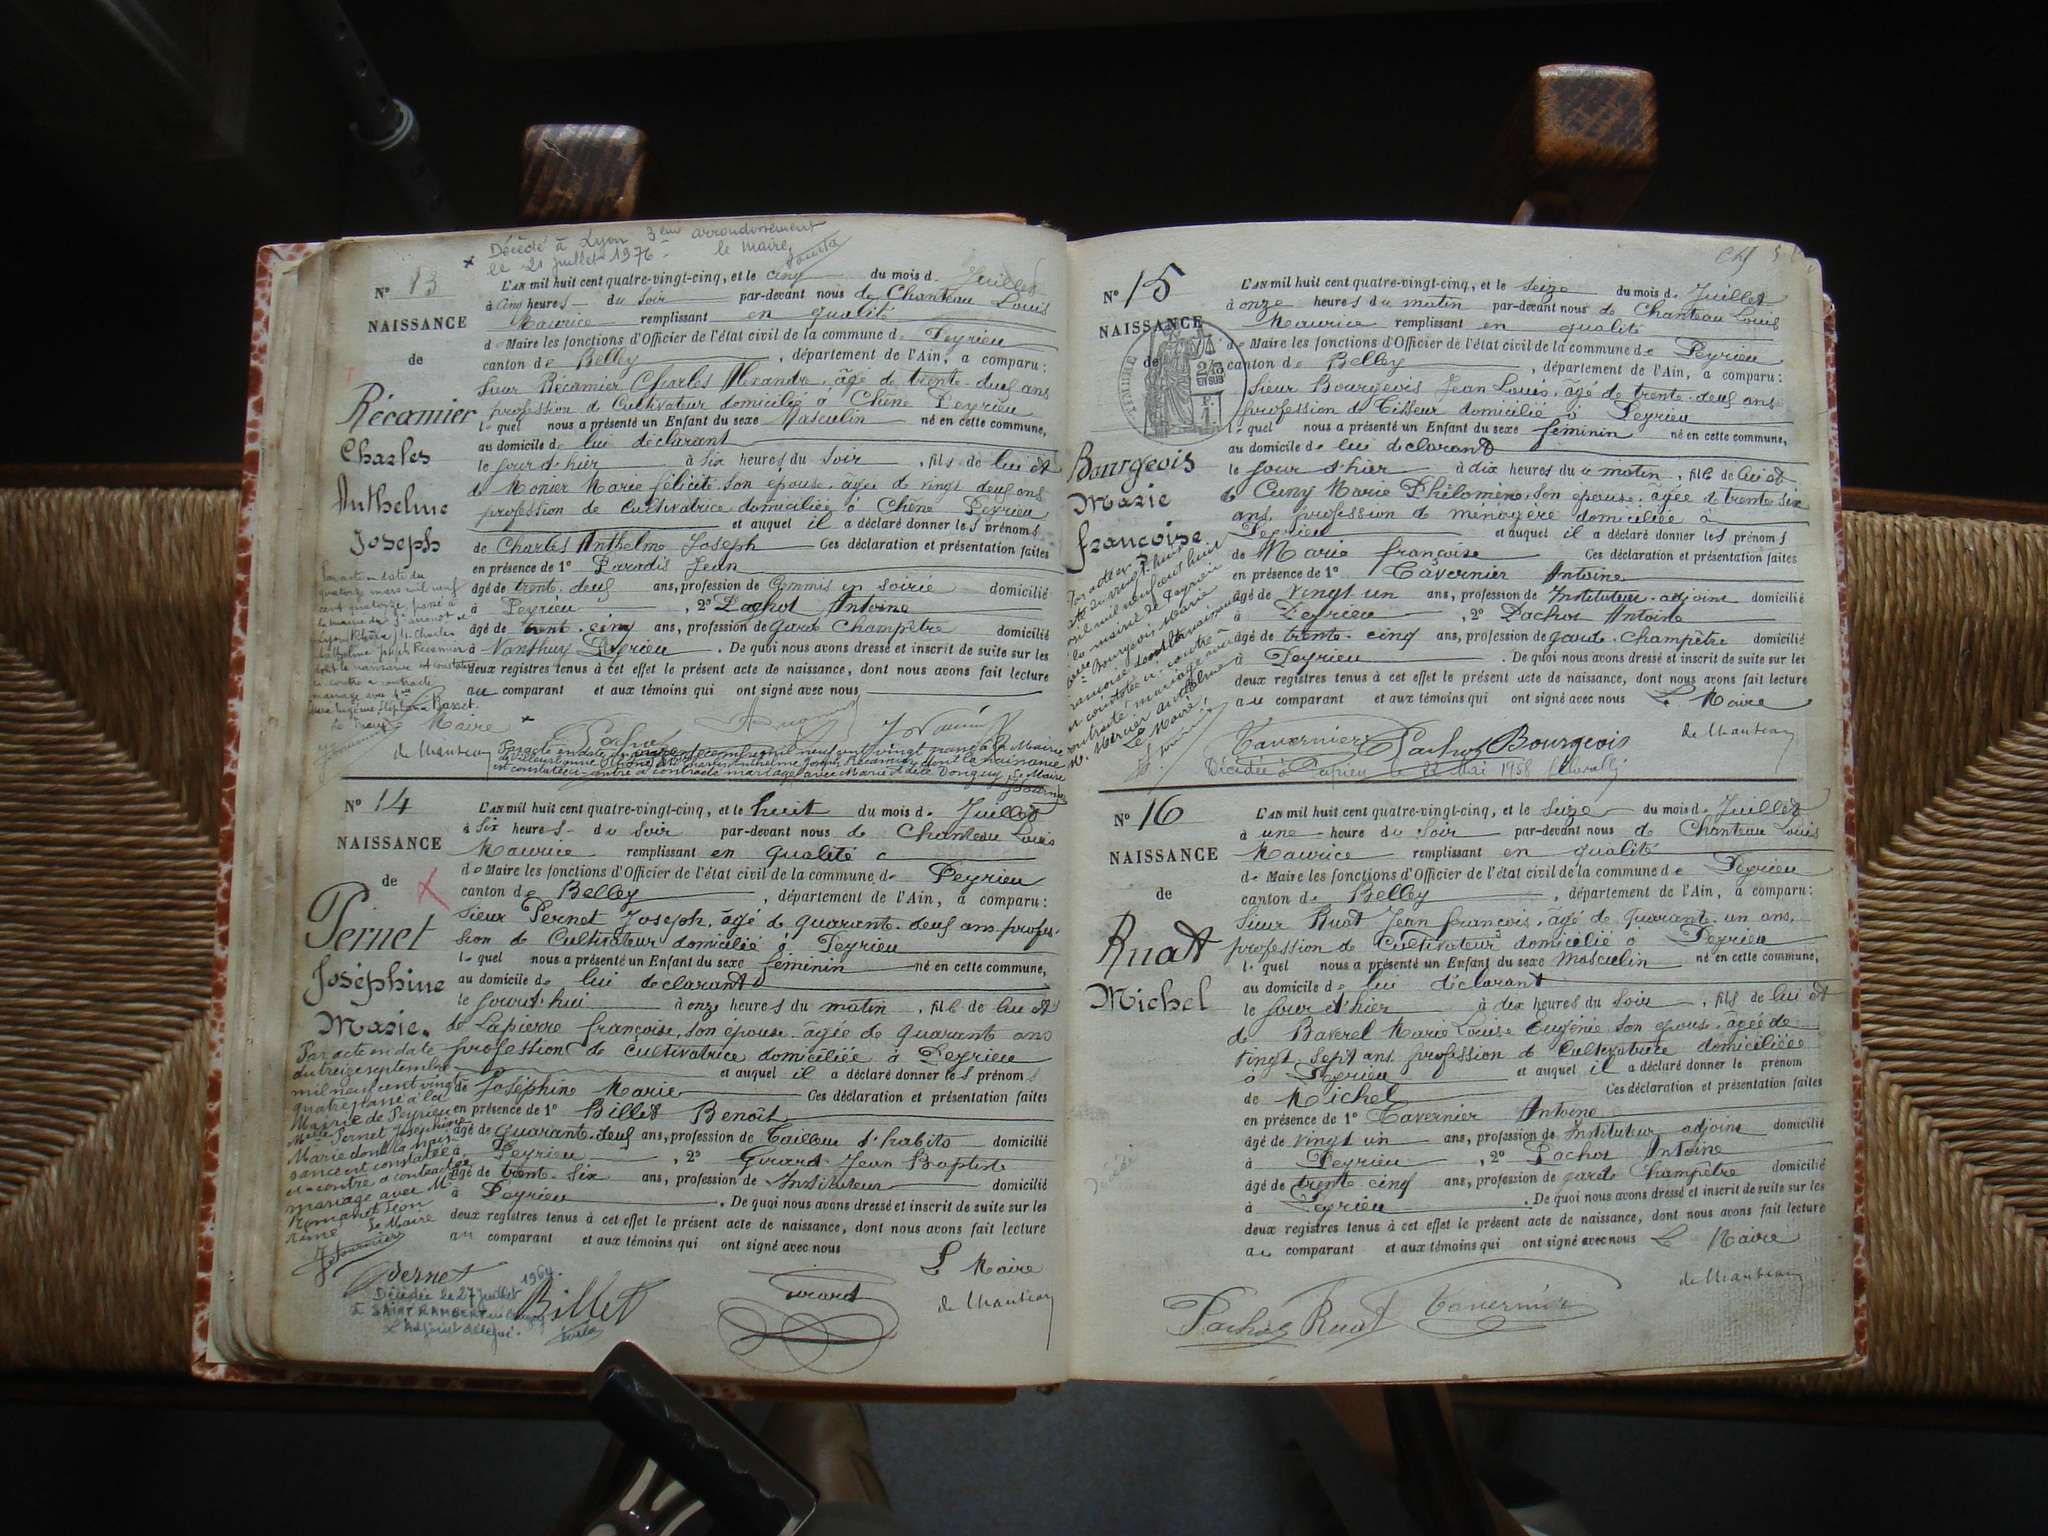 Décédé à Lyon 3ème arrondissement
le 21 juillet 1976 - le Maire,
N° 13
NAISSANCE
de
Récamier
Charles
Anthelme
Joseph
L'AN mil huit cent quatre-vingt-cinq, et le cinq du mois de Juillet
à cinq heures du soir par-devant nous de Chanteau Louis
Maurice remplissant en qualité
de Maire les fonctions d'Officier de l'état civil de la commune de Peyrieu
canton de Belley, département de l'Ain, a comparu:
Sieur Récamier Charles Alexandre, âgé de trente-deux ans
profession de Cultivateur domicilié à Chêne Peyrieu
lequel nous a présenté un Enfant du sexe Masculin né en cette commune,
au domicile de lui déclarant
le jour d'hier à six heures du soir, fils de lui et
de Monier Marie félicité, son épouse, agée de vingt deux ans
profession de Cultivatrice domiciliée à Chêne Peyrieu
et auquel il a déclaré donner les prénoms
de Charles Anthelme Joseph Ces déclaration et présentation faites
en présence de 1° Paradis Jean
âgé de trente-deux ans, profession de Commis en soirie domicilié
à Peyrieu, 2° Pachot Antoine
âgé de trente-cinq ans, profession de Garde Champêtre domicilié
à Peyrieu. De quoi nous avons dressé et inscrit de suite sur les
deux registres tenus à cet effet le présent acte de naissance, dont nous avons fait lecture
au comparant et aux témoins qui ont signé avec nous
Maire
de Chanteau
N° 14
NAISSANCE
de
Pernet
Joséphine
Marie.
L'AN mil huit cent quatre-vingt-cinq, et le huit du mois de Juillet
à six heures du soir par-devant nous de Chanteau Louis
Maurice remplissant en qualité
de Maire les fonctions d'Officier de l'état civil de la commune de Peyrieu
canton de Belley, département de l'Ain, a comparu:
Sieur Pernet Joseph, âgé de quarante-deux ans profes-
sion de Cultivateur domicilié à Peyrieu
lequel nous a présenté un Enfant du sexe féminin né en cette commune,
au domicile de lui déclarant
le jourd'hui à onze heures du matin, fille de lui et
de Lapierre françoise, son épouse, âgée de quarante ans
profession de cultivatrice domiciliée à Peyrieu
et auquel il a déclaré donner les prénoms
de Joséphine Marie Ces déclaration et présentation faites
en présence de 1° Billet Benoît
âgé de quarante-deux ans, profession de Tailleur d'habits domicilié
à Peyrieu, 2° Girard Jean Baptiste
âgé de trente-six ans, profession de Instituteur domicilié
à Peyrieu. De quoi nous avons dressé et inscrit de suite sur les
deux registres tenus à cet effet le présent acte de naissance, dont nous avons fait lecture
au comparant et aux témoins qui ont signé avec nous
Le Maire
de Chanteau
Par acte en date
du treize septembre
mil neuf cent vingt
quatre passé à la
Mairie de Peyrieu
Melle Pernet Joséphine
Marie dont la nais-
sance est constatée
ci-contre a contracté
mariage avec Mr
Romanet Léon
Le Maire
Pernet
Billet
Girard
Décédée le 27 juillet 1964
à SAINT RAMBERT en Bugey
L'Adjoint délégué.
N° 15
NAISSANCE
de
Bourgeois
Marie
françoise
L'AN mil huit cent quatre-vingt-cinq, et le seize du mois de Juillet
à onze heures du matin par-devant nous de Chanteau Louis
Maurice remplissant en qualité
de Maire les fonctions d'Officier de l'état civil de la commune de Peyrieu
canton de Belley, département de l'Ain, a comparu:
Sieur Bourgeois Jean Louis, âgé de trente-deux ans
profession de Tisseur domicilié à Peyrieu
lequel nous a présenté un Enfant du sexe féminin né en cette commune,
au domicile de lui déclarant
le jour d'hier à dix heures du matin, fille de lui et
de Cuny Marie Philomène, son épouse, âgée de trente six
ans, profession de ménagère domiciliée à
Peyrieu et auquel il a déclaré donner les prénoms
de Marie françoise Ces déclaration et présentation faites
en présence de 1° Tavernier Antoine
âgé de vingt un ans, profession de Instituteur-adjoint domicilié
à Peyrieu, 2° Pachot Antoine
âgé de trente-cinq ans, profession de garde-champêtre domicilié
à Peyrieu. De quoi nous avons dressé et inscrit de suite sur les
deux registres tenus à cet effet le présent acte de naissance, dont nous avons fait lecture
au comparant et aux témoins qui ont signé avec nous Le Maire
Tavernier Pachot Bourgeois de Chanteau
Décédée à Peyrieu le 22 Mai 1958
N° 16
NAISSANCE
de
Ruat
Michel
L'AN mil huit cent quatre-vingt-cinq, et le seize du mois de Juillet
à une heure du soir par-devant nous de Chanteau Louis
Maurice remplissant en qualité
de Maire les fonctions d'Officier de l'état civil de la commune de Peyrieu
canton de Belley, département de l'Ain, a comparu:
Sieur Ruat Jean françois, âgé de quarante-un ans,
profession de Cultivateur domicilié à Peyrieu
lequel nous a présenté un Enfant du sexe Masculin né en cette commune,
au domicile de lui déclarant
le jour d'hier à dix heures du soir, fils de lui et
de Baverel Marie Louise Eugénie son épouse, âgée de
vingt-sept ans profession de Cultivatrice domiciliée
à Peyrieu et auquel il a déclaré donner le prénom
de Michel Ces déclaration et présentation faites
en présence de 1° Tavernier Antoine
âgé de vingt un ans, profession de Instituteur adjoint domicilié
à Peyrieu, 2° Pachot Antoine
âgé de trente-cinq ans, profession de garde champêtre domicilié
à Peyrieu. De quoi nous avons dressé et inscrit de suite sur les
deux registres tenus à cet effet le présent acte de naissance, dont nous avons fait lecture
au comparant et aux témoins qui ont signé avec nous Le Maire
de Chanteau
Pachot Ruat Tavernier